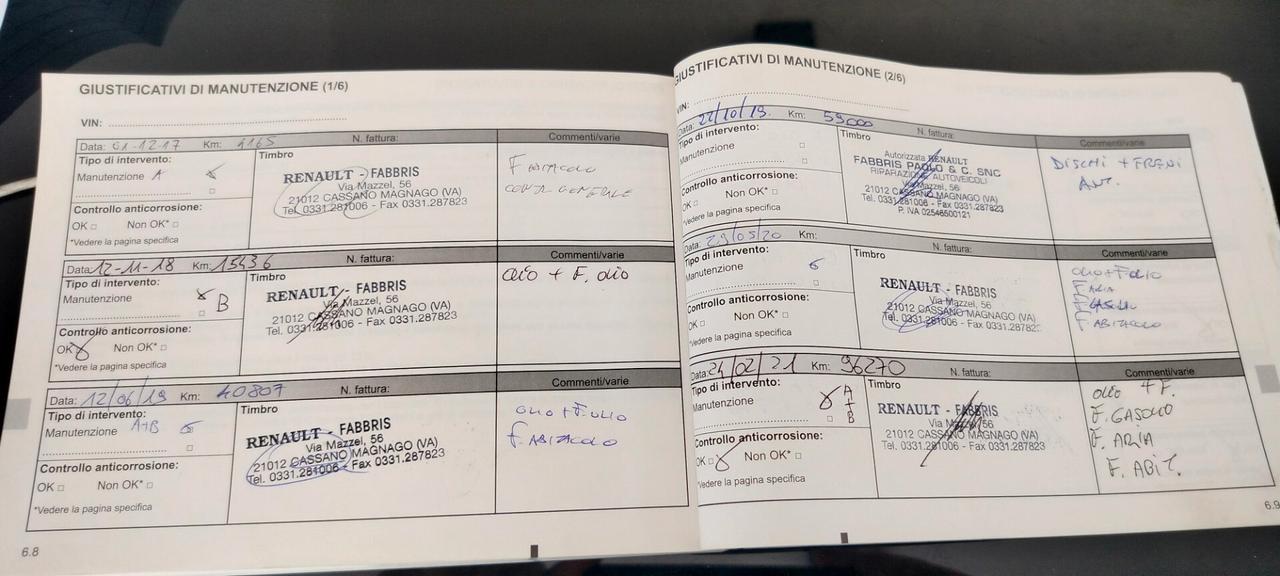 GIUSTIFICATIVI DI MANUTENZIONE (1/6)
VIN:
Data: 01-12-17 Km: 4165 N. fattura: Commenti/varie
Tipo di intervento:
Manutenzione A
Controllo anticorrosione:
OK Non OK*
*Vedere la pagina specifica
Timbro
RENAULT - FABBRIS
Via Mazzel, 56
21012 CASSANO MAGNAGO (VA)
Tel. 0331.281006 - Fax 0331.287823
F ABITACOLO
Data: 12-11-18 Km: 15436 N. fattura: Commenti/varie
Tipo di intervento:
Manutenzione
B
Controllo anticorrosione:
OK Non OK*
*Vedere la pagina specifica
Timbro
RENAULT - FABBRIS
Via Mazzel, 56
21012 CASSANO MAGNAGO (VA)
Tel. 0331.281006 - Fax 0331.287823
olio + F. olio
Data: 12/06/19 Km: 40807 N. fattura: Commenti/varie
Tipo di intervento:
Manutenzione A+B
Controllo anticorrosione:
OK Non OK*
*Vedere la pagina specifica
Timbro
RENAULT - FABBRIS
Via Mazzel, 56
21012 CASSANO MAGNAGO (VA)
Tel. 0331.281006 - Fax 0331.287823
OLIO + F. OLIO
F. ABITACOLO
6.8
GIUSTIFICATIVI DI MANUTENZIONE (2/6)
VIN:
Data: 22/10/19 Km: 59000 N. fattura: Commenti/varie
Tipo di intervento:
Manutenzione
Controllo anticorrosione:
OK Non OK*
*Vedere la pagina specifica
Timbro
Autorizzata RENAULT
FABBRIS PAOLO & C. SNC
RIPARAZIONE AUTOVEICOLI
21012 CASSANO MAGNAGO (VA)
Tel. 0331.281006 - Fax 0331.287823
P. IVA 02546500121
DISCHI + FRENI
ANT.
Data: 29/05/20 Km: N. fattura: Commenti/varie
Tipo di intervento:
Manutenzione
Controllo anticorrosione:
OK Non OK*
*Vedere la pagina specifica
Timbro
RENAULT - FABBRIS
Via Mazzel, 56
21012 CASSANO MAGNAGO (VA)
Tel. 0331.281006 - Fax 0331.28782
OLIO + F OLIO
F. ARIA
F. GASOLIO
F. ABITACOLO
Data: 24/02/21 Km: 96270 N. fattura: Commenti/varie
Tipo di intervento:
Manutenzione A + B
Controllo anticorrosione:
OK Non OK*
*Vedere la pagina specifica
Timbro
RENAULT - FABBRIS
Via Mazzel, 56
21012 CASSANO MAGNAGO (VA)
Tel. 0331.281006 - Fax 0331.287823
olio + F.
F. GASOLIO
F. ARIA
F. ABIT.
6.9